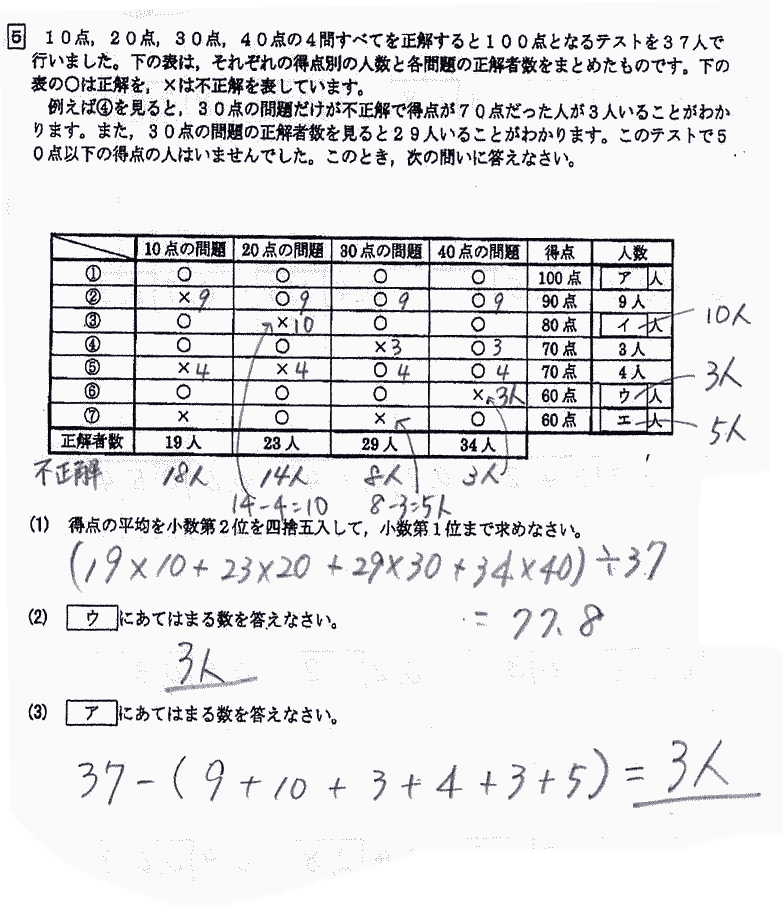 5 10点，20点，30点，40点の4問すべてを正解すると100点となるテストを37人で
行いました。下の表は，それぞれの得点別の人数と各問題の正解者数をまとめたものです。下の
表の○は正解を，×は不正解を表しています。
例えば④を見ると，30点の問題だけが不正解で得点が70点だった人が3人いることがわか
ります。また，30点の問題の正解者数を見ると29人いることがわかります。このテストで5
0点以下の得点の人はいませんでした。このとき，次の問いに答えなさい。
10点の問題 20点の問題 30点の問題 40点の問題 得点 人数
① ○ ○ ○ ○ 100点 ア 人
② ×9 ○9 ○9 ○9 90点 9人
③ ○ ×10 ○ ○ 80点 イ 人 10人
④ ○ ○ ×3 ○3 70点 3人
⑤ ×4 ×4 ○4 ○4 70点 4人
⑥ ○ ○ ○ ×3人 60点 ウ 人 3人
⑦ × ○ × ○ 60点 エ 人 5人
正解者数 19人 23人 29人 34人
不正解 18人 14人 8人 3人
14-4=10 8-3=5人
(1) 得点の平均を小数第2位を四捨五入して，小数第1位まで求めなさい。
(19×10+23×20+29×30+34×40)÷37
=77.8
(2) ウ にあてはまる数を答えなさい。
3人
(3) ア にあてはまる数を答えなさい。
37-(9+10+3+4+3+5)=3人